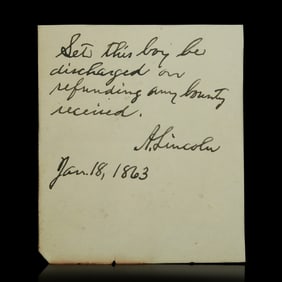 Let this boy be
discharged on
refunding any bounty
received.
A. Lincoln
Jan. 18, 1863